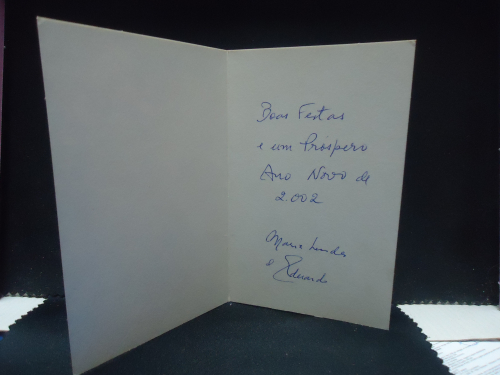 Boas Festas
e um Próspero
Ano Novo de
2.002
Maria
e Eduardo